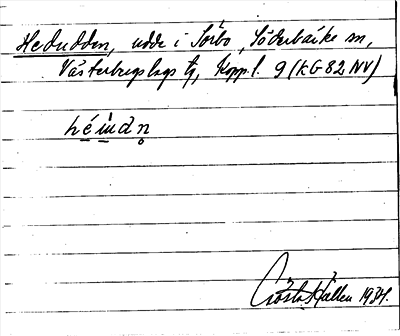 Hedudden, udde i Sörbo, Söderbärke sn,
Västerbergslags tg, Kopp. l. 9 (KG 82 NV)
Gösta Källen 1934.